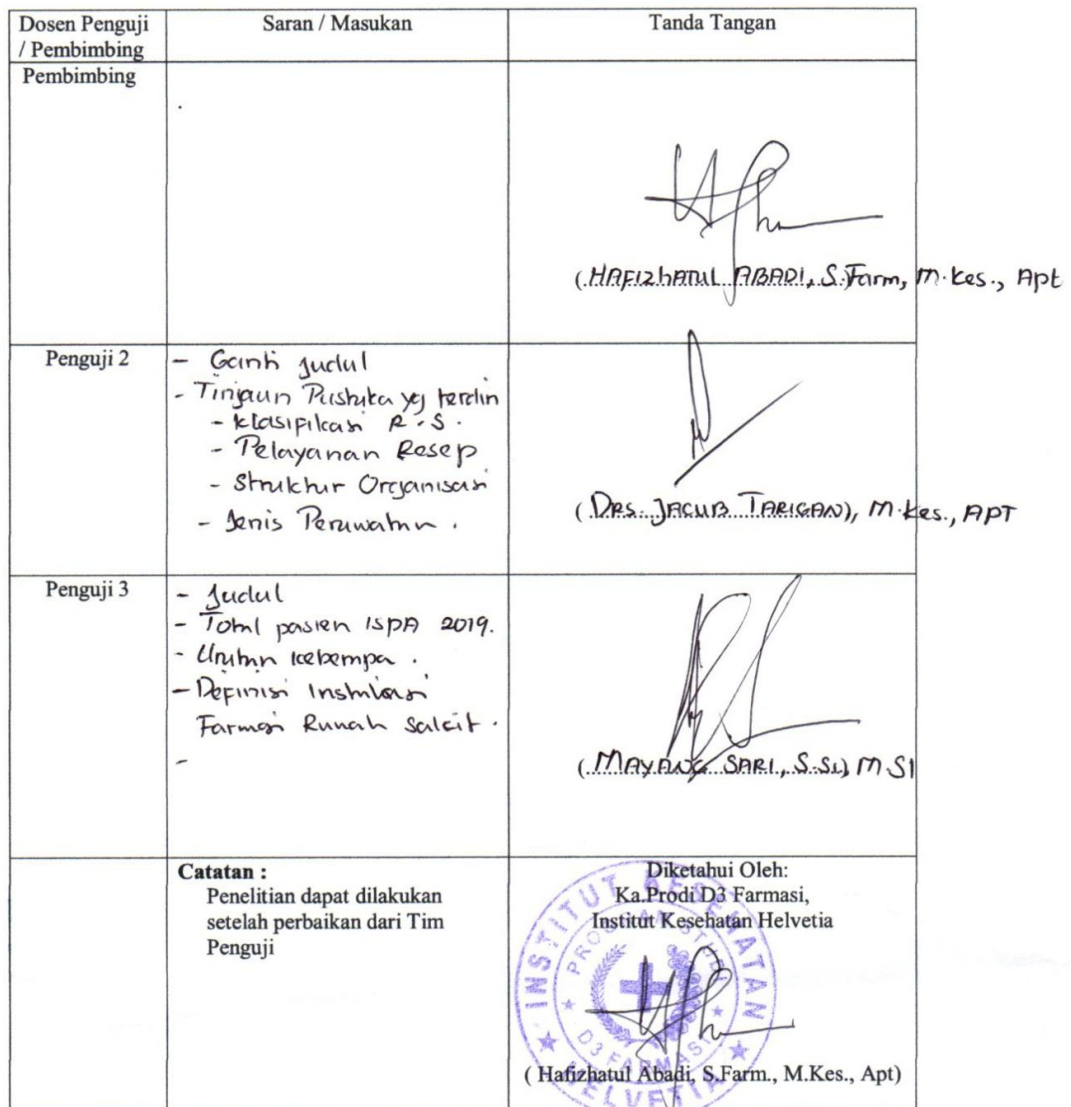 Dosen Penguji / Pembimbing
Saran / Masukan
Tanda Tangan
Pembimbing
(HAFIZHATUL ABADI, S.Farm, M.Kes., Apt
Penguji 2
- Ganti Judul
- Tinjaun Pustaka yg terdiri
- Klasifikasi R.S.
- Pelayanan Resep
- Struktur Organisasi
- Jenis Perawatan.
(DRS. JACUB TARIGAN), M.Kes., APT
Penguji 3
- Judul
- Total pasien ISPA 2019.
- Urutan
- Definisi Instalasi
Farmasi Rumah Sakit.
-
(MAYANG SARI, S.Si), M.SI
Catatan :
Penelitian dapat dilakukan
setelah perbaikan dari Tim
Penguji
Diketahui Oleh:
Ka.Prodi D3 Farmasi,
Institut Kesehatan Helvetia
INSTITUT KESEHATAN HELVETIA
PROGRAM STUDI
D3 FARMASI
( Hafizhatul Abadi, S.Farm., M.Kes., Apt)